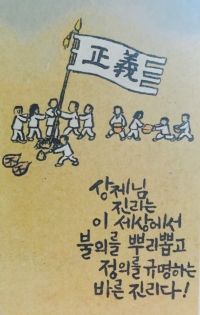 正義
상제님
진리는
이 세상에서
불의를 뿌리뽑고
정의를 규명하는
바른 진리다!